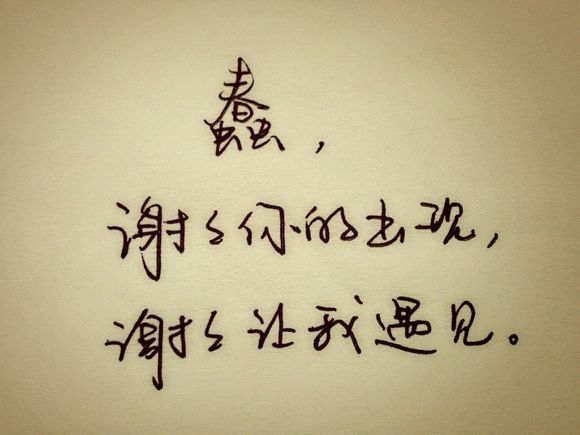 蠢，
谢谢你的出现，
谢谢让我遇见。